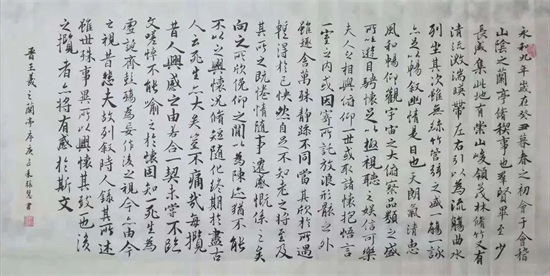 永和九年歲在癸丑暮春之初會于會稽
山陰之蘭亭脩稧事也羣賢畢至少
長咸集此地有崇山峻領茂林脩竹又有
清流激湍暎帶左右引以為流觴曲水
列坐其次雖無絲竹管弦之盛一觴一詠
亦足以暢敘幽情是日也天朗氣清惠
風和暢仰觀宇宙之大俯察品類之盛
所以遊目騁懷足以極視聽之娛信可樂也
夫人之相與俯仰一世或取諸懷抱悟言
一室之內或因寄所託放浪形骸之外
雖趣舍萬殊靜躁不同當其欣於所遇
蹔得於己快然自足不知老之將至及
其所之既惓情隨事遷感慨係之矣
向之所欣俛仰之閒以為陳迹猶不能
不以之興懷況脩短隨化終期於盡古
人云死生亦大矣豈不痛哉每攬
昔人興感之由若合一契未嘗不臨
文嗟悼不能喻之於懷固知一死生為
虛誕齊彭殤為妄作後之視今亦由今
之視昔悲夫故列敘時人錄其所述
雖世殊事異所以興懷其致一也後
之攬者亦將有感於斯文
晉王羲之蘭亭序庚子書